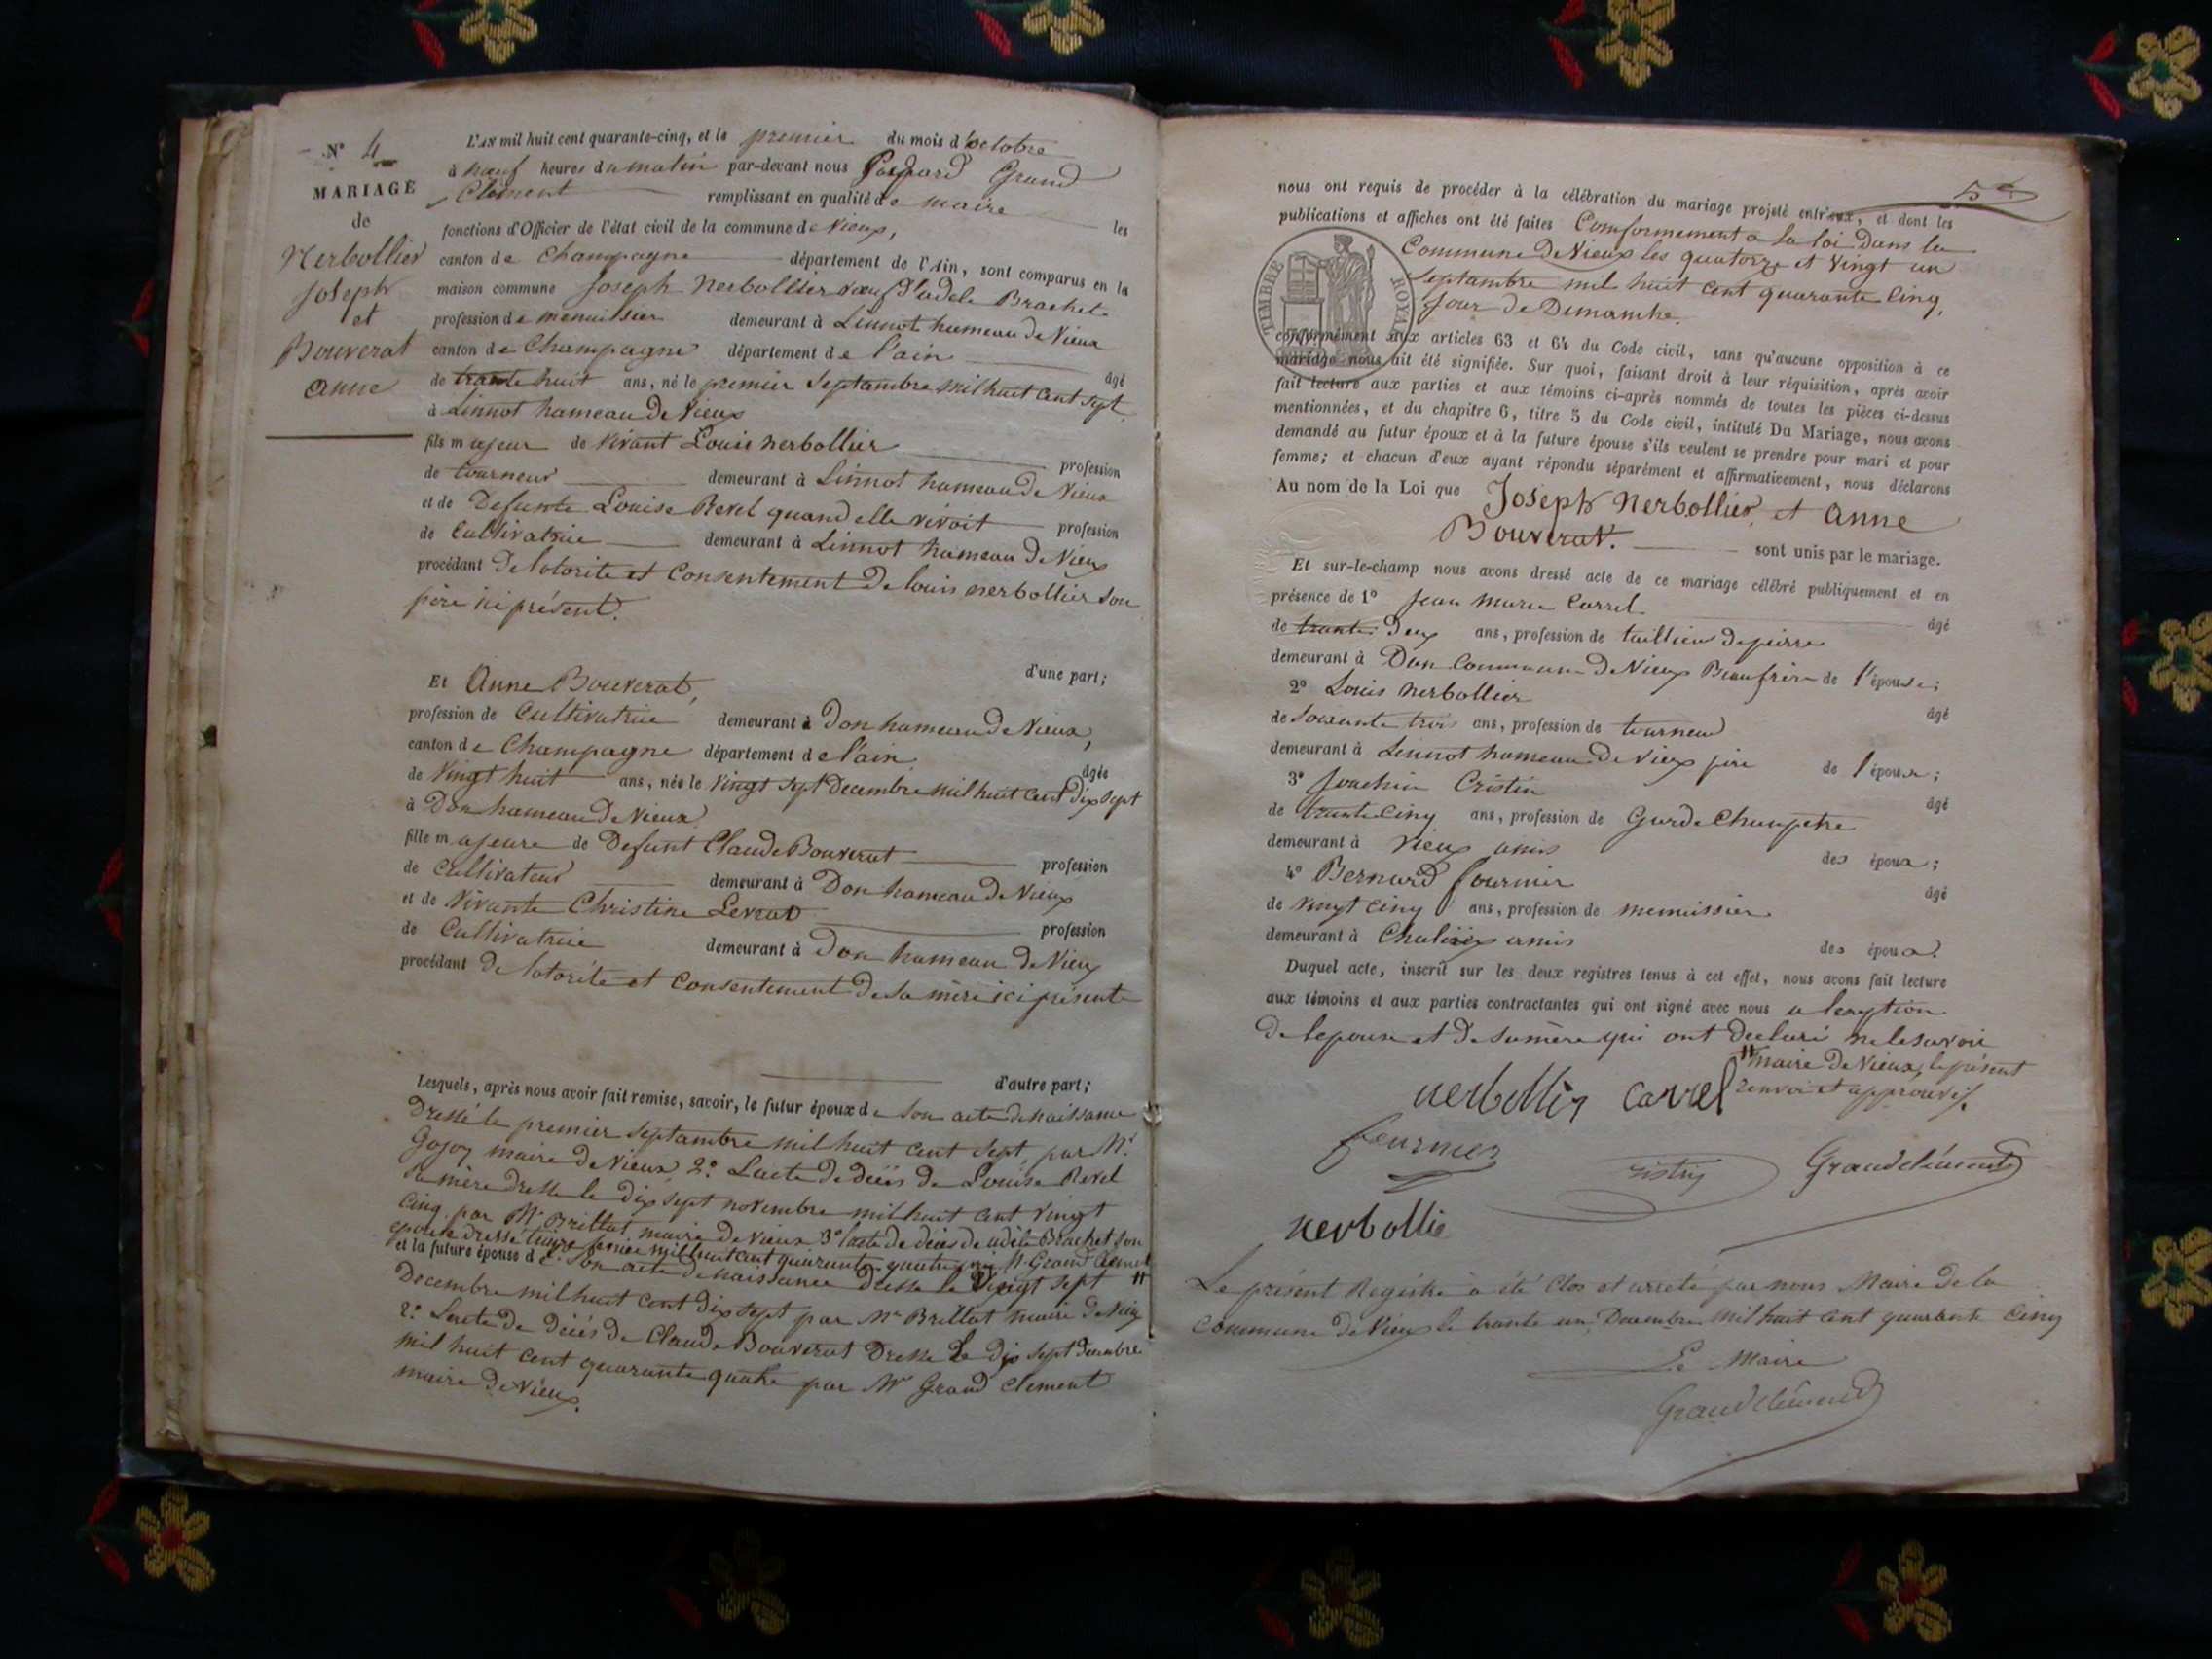 N° 4
MARIAGE
de
Nerbollier
Joseph
et
Bouverat
Anne
L'AN mil huit cent quarante-cinq, et le premier du mois d'octobre
à neuf heures du matin par-devant nous Gaspard Grand
Clément remplissant en qualité de maire les
fonctions d'Officier de l'état civil de la commune de Vieux,
canton de Champagne département de l'Ain, sont comparus en la
maison commune Joseph Nerbollier veuf d'adele Brachet
profession de menuisier demeurant à Linnot hameau de Vieux
canton de Champagne département de l'ain âgé
de trante huit ans, né le premier Septambre mil huit cent sept
à Linnot hameau de Vieux
fils majeur de vivant Louis nerbollier profession
de tourneur demeurant à Linnot hameau de Vieux
et de Defunte Louise Revel quand elle vivoit profession
de Cultivatrice demeurant à Linnot hameau de Vieux
procédant De lotorite et Consentement De louis nerbollier Son
père ici présent.
d'une part;
Et Anne Bouverat,
profession de Cultivatrice demeurant à Don hameau de Vieux,
canton de Champagne département de l'ain
âgée
de Vingt huit ans, née le Vingt sept Decembre mil huit cent Dix sept
à Don hameau de Vieux
fille majeure de Defunt Claude Bouverat profession
de Cultivateur demeurant à Don hameau de Vieux
et de Vivante Christine Levrat profession
de Cultivatrice demeurant à Don hameau de Vieux
procédant De lotorite et Consentement De Sa mère ici présente
d'autre part;
Lesquels, après nous avoir fait remise, savoir, le futur époux de Son acte de naissance
Dressé le premier septambre mil huit cent sept, par Mr
Gojoz maire de Vieux 2° Lacte de décès de Louise Revel
Sa mère Dresse le dix sept novembre mil huit cent vingt
Cinq par Mr Brillat maire de vieux 3° lacte de décès de adèle Brachet son
epouse dressé mil huit cent quarante quatre Mr Grand Clement
et la future épouse de Son acte de Naissance Dresse le Vingt sept
Decembre mil huit cent dix sept par Mr Brillat maire de Vieux
2° Lacte de décès de Claude Bouverat Dresse Le dix sept Decembre
mil huit cent quarante quatre par Mr Grand Clement
maire de Vieux.
5e
nous ont requis de procéder à la célébration du mariage projeté entr'eux, et dont les
publications et affiches ont été faites Comformement a la loi Dans la
Commune de Vieux les quatorze et Vingt un
Septambre mil huit cent quarante Cinq,
Jour de Dimanche.
TIMBRE ROYAL
conformément aux articles 63 et 64 du Code civil, sans qu'aucune opposition à ce
mariage nous ait été signifiée. Sur quoi, faisant droit à leur réquisition, après avoir
fait lecture aux parties et aux témoins ci-après nommés de toutes les pièces ci-dessus
mentionnées, et du chapitre 6, titre 5 du Code civil, intitulé Du Mariage, nous avons
demandé au futur époux et à la future épouse s'ils veulent se prendre pour mari et pour
femme; et chacun d'eux ayant répondu séparément et affirmativement, nous déclarons
Au nom de la Loi que Joseph Nerbollier, et Anne
Bouverat. sont unis par le mariage.
Et sur-le-champ nous avons dressé acte de ce mariage célébré publiquement et en
présence de 1° Jean Marie Carrel âgé
de trante Deux ans, profession de taillieur de pierre
demeurant à Don Commune De Vieux Beaufrère de l'épouse;
2° Louis Nerbollier âgé
de Soixante trois ans, profession de tourneur
demeurant à Linnot hameau De Vieux père de l'époux;
3° Joachin Cristin âgé
de trante Cinq ans, profession de Garde Champetre
demeurant à Vieux amis des époux;
4° Bernard fournier âgé
de Vingt Cinq ans, profession de menuisier
demeurant à Chaliex amis des époux.
Duquel acte, inscrit sur les deux registres tenus à cet effet, nous avons fait lecture
aux témoins et aux parties contractantes qui ont signé avec nous a lexeption
De lepouse et De Samère qui ont Declaré ne le savoir
maire De Vieux, le présent
renvoi et approuvé
nerbollier Carrel
fournier
Cristin Grandclément
nerbollie
Le présent Registre a été Clos et arreté par nous Maire de la
Commune de Vieux le trante un Decembre mil huit cent quarante Cinq
Le Maire
Grandclément